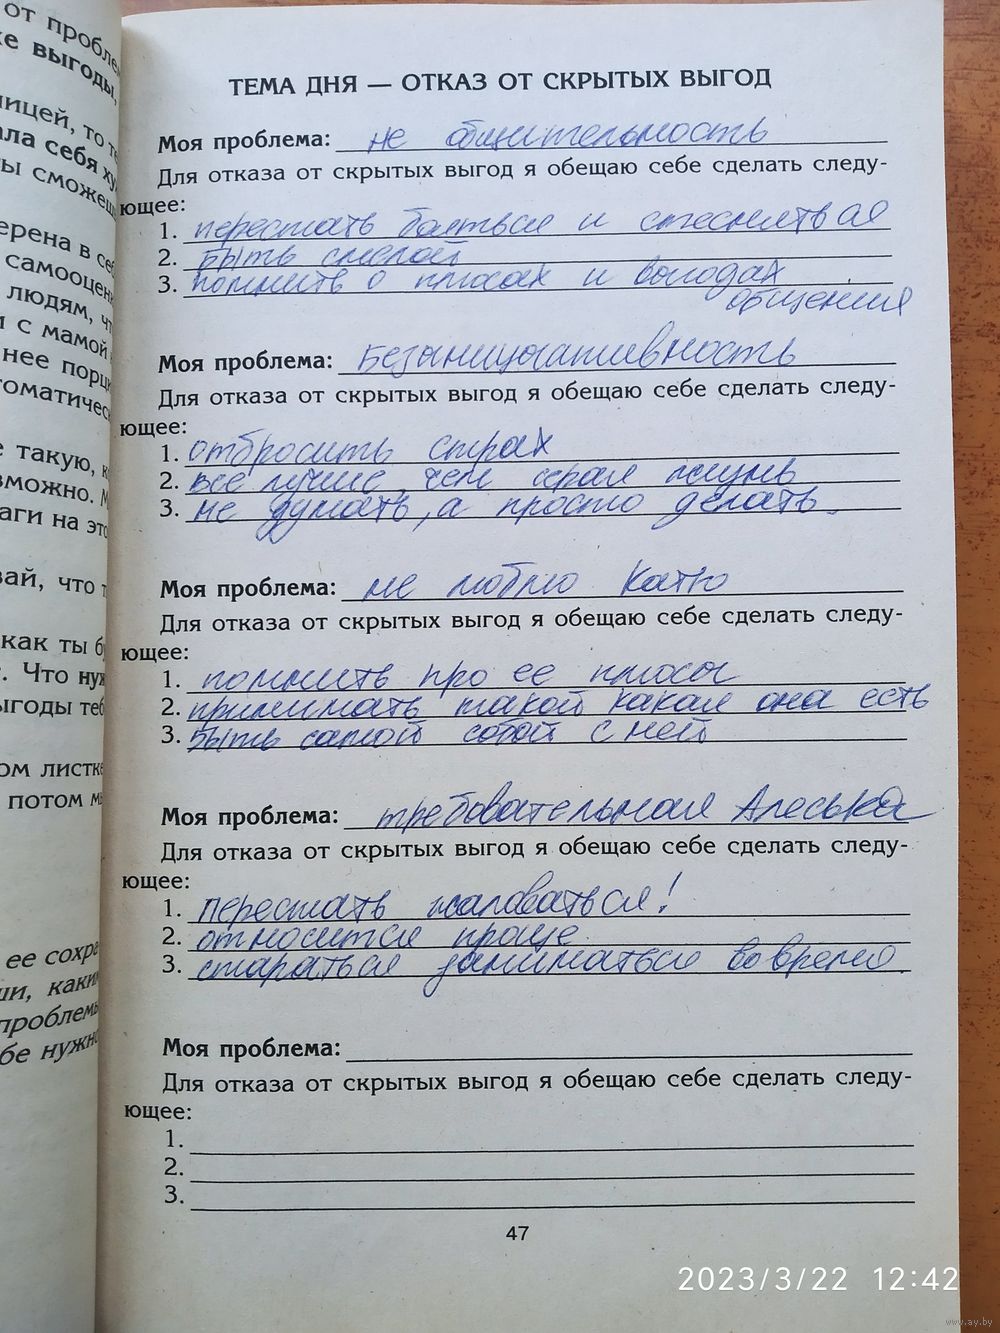 от пробле
же выгоды,
ницей, то те
ала себя ху
ты сможеш
ерена в себ
самооцен
людям, чт
и с мамой
нее порци
томатичес
е такую, к
зможно. М
аги на это
вай, что т
как ты бу
. Что нуж
ыгоды теб
ом листке
потом мы
ее сохра
ши, каким
проблемы
бе нужно
ТЕМА ДНЯ — ОТКАЗ ОТ СКРЫТЫХ ВЫГОД
Моя проблема: не общительность
Для отказа от скрытых выгод я обещаю себе сделать следу-
ющее:
1. перестать болться и стеснятвая
2. быть смелой
3. помнить о плюсах и выгодах
общения
Моя проблема: Безынициативность
Для отказа от скрытых выгод я обещаю себе сделать следу-
ющее:
1. отбросить страх
2. все лучше, чем серая жизнь
3. не думать, а просто делать.
Моя проблема: не люблю Катю
Для отказа от скрытых выгод я обещаю себе сделать следу-
ющее:
1. помнить про ее плюсы
2. принимать такой какая она есть
3. быть самой собой с ней
Моя проблема: требовательная Алеська
Для отказа от скрытых выгод я обещаю себе сделать следу-
ющее:
1. перестать жаловаться!
2. относится проще
3. стараться заниматься вовремя.
Моя проблема:
Для отказа от скрытых выгод я обещаю себе сделать следу-
ющее:
1.
2.
3.
47
2023/3/22 12:42
www.ay.by